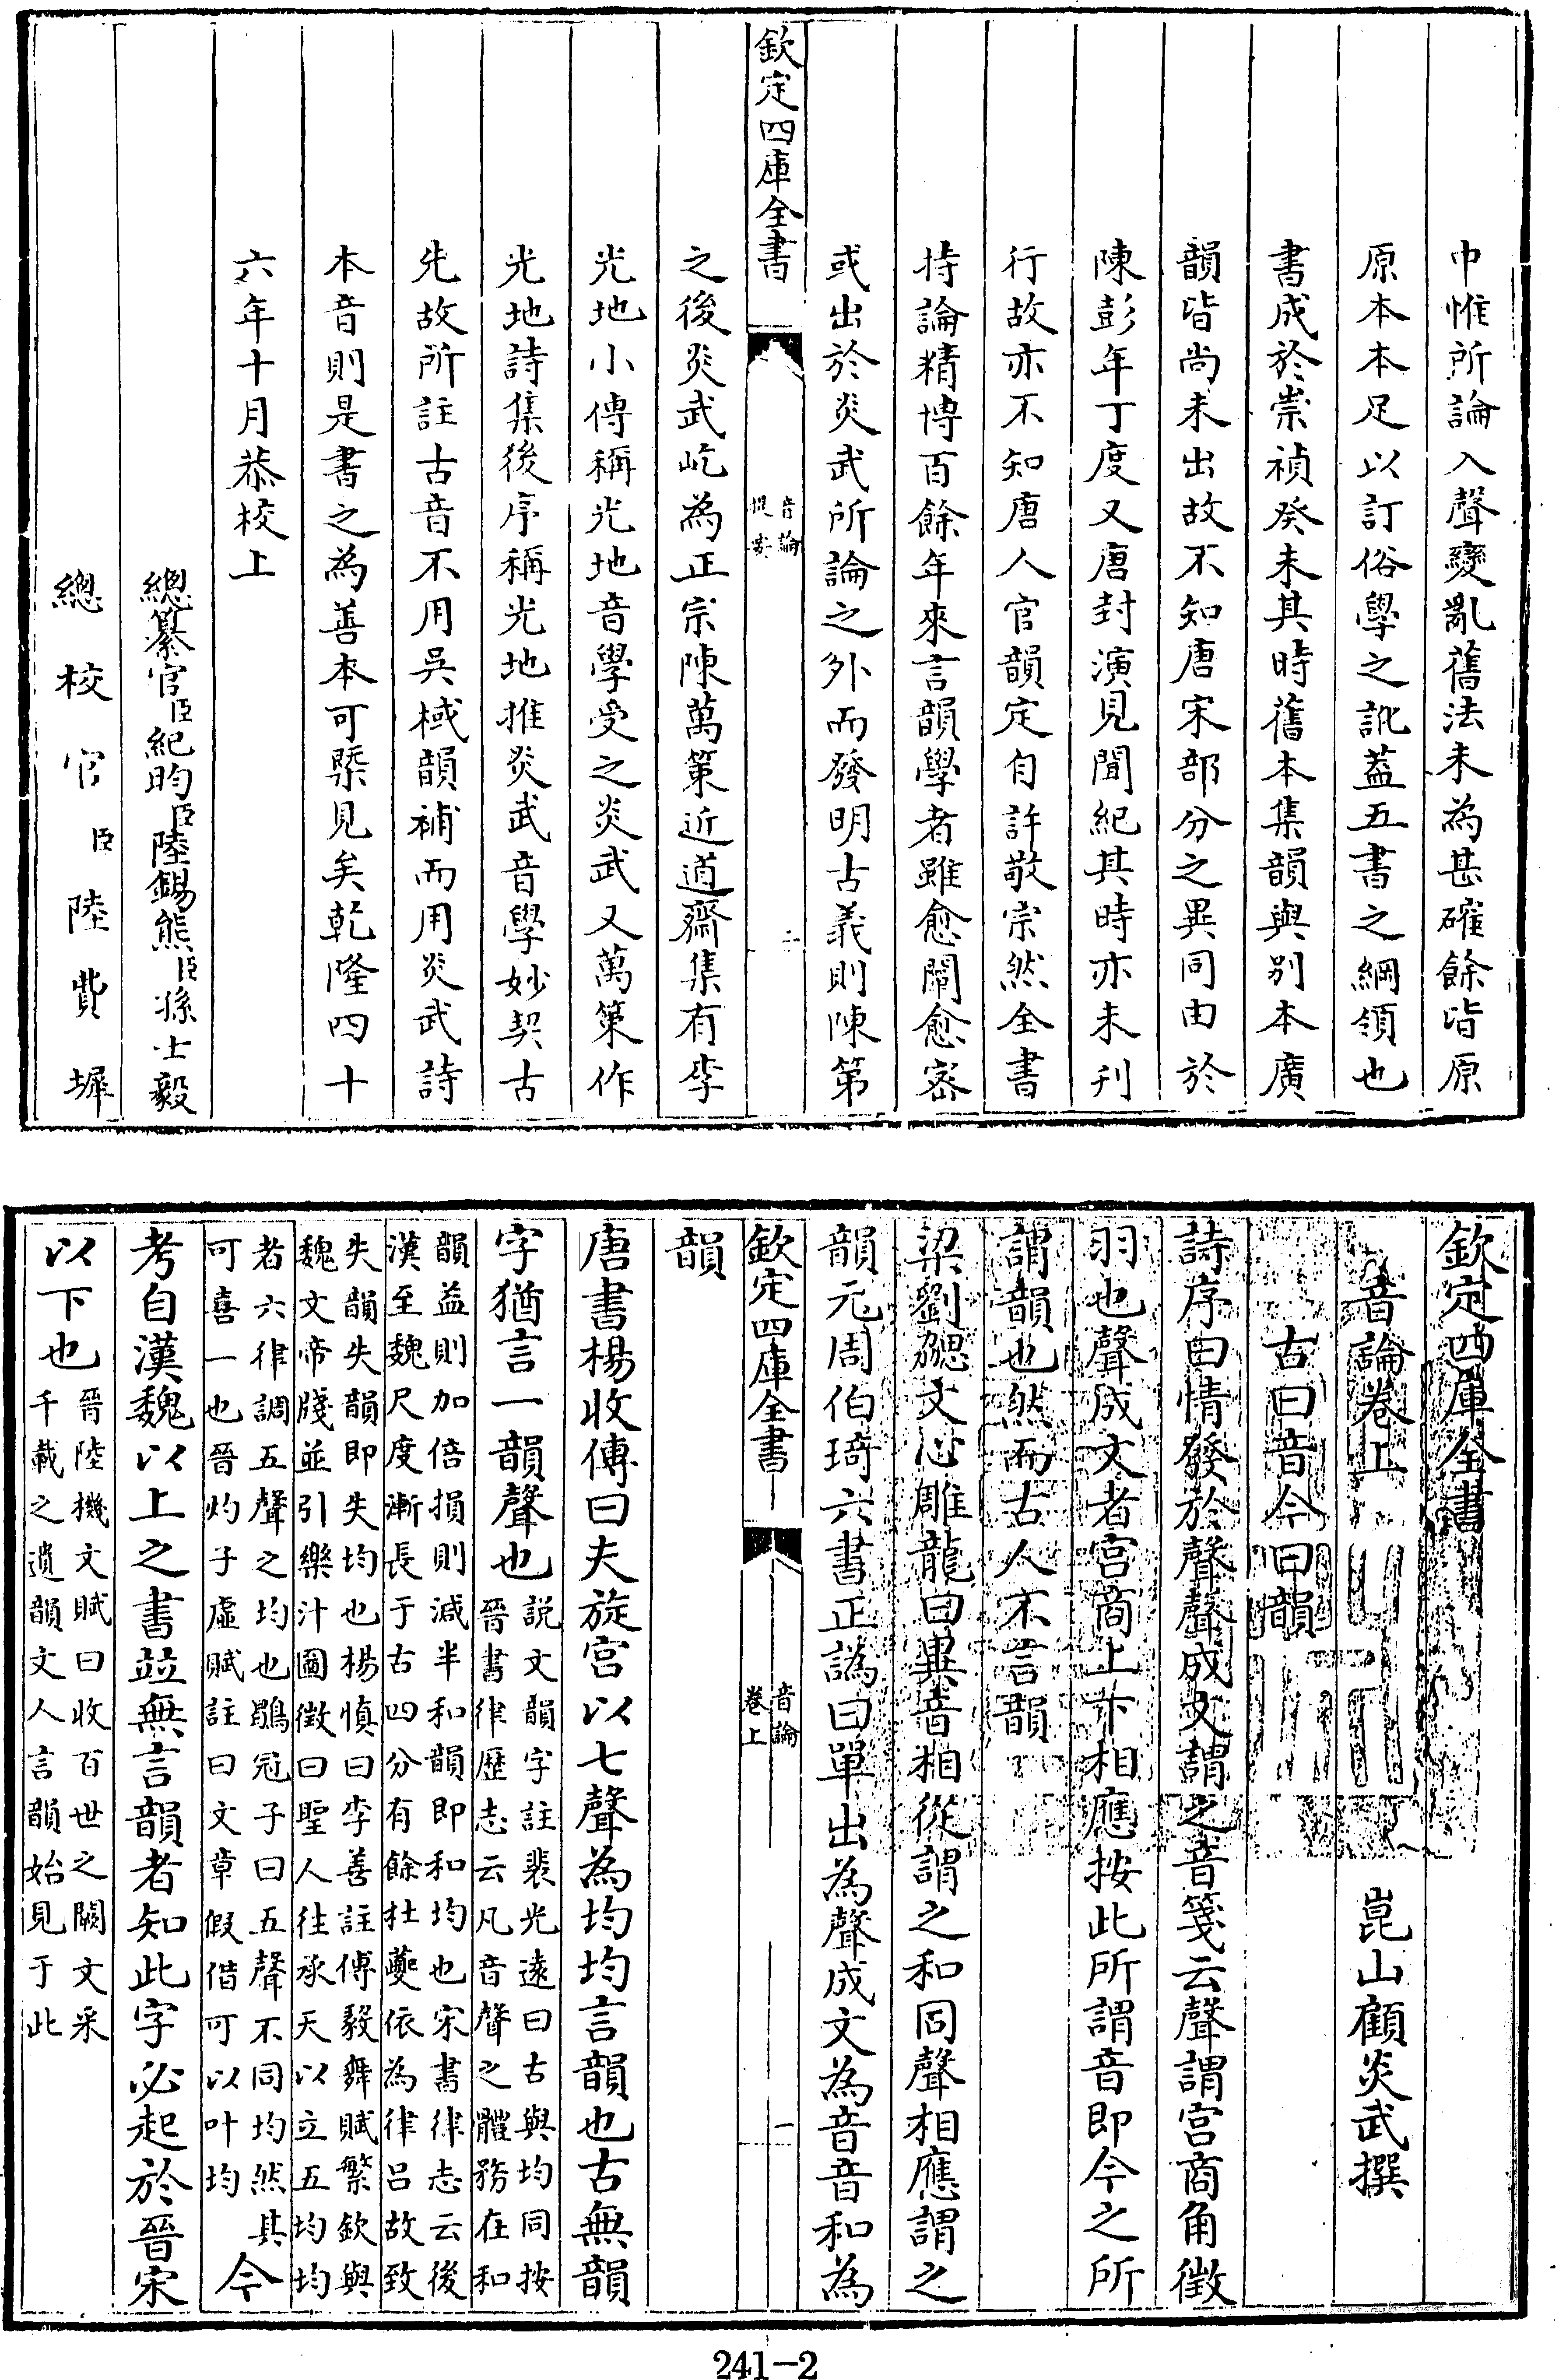 中惟所論入聲變亂舊法未為甚確餘皆原
原本本足以訂俗學之訛蓋五書之綱領也
書成於崇禎癸未其時舊本集韻與別本廣
韻皆尚未出故不知唐宋部分之異同由於
陳彭年丁度又唐封演見聞紀其時亦未刊
行故亦不知唐人官韻定自許敬宗然全書
持論精博百餘年來言韻學者雖愈闡愈密
或出於炎武所論之外而發明古義則陳第
欽定四庫全書
音論
提要
二
之後炎武屹為正宗陳萬策近道齋集有李
光地小傳稱光地音學受之炎武又萬策作
光地詩集後序稱光地推炎武音學妙契古
先故所註古音不用吳棫韻補而用炎武詩
本音則是書之為善本可槩見矣乾隆四十
六年十月恭校上
總纂官臣紀昀臣陸錫熊臣孫士毅
總校官臣陸費墀
欽定四庫全書
音論卷上
崑山顧炎武撰
古曰音今曰韻
詩序曰情發於聲聲成文謂之音箋云聲謂宮商角徵
羽也聲成文者宮商上下相應按此所謂音即今之所
謂韻也然而古人不言韻
梁劉勰文心雕龍曰異音相從謂之和同聲相應謂之
韻元周伯琦六書正譌曰單出為聲成文為音音和為
欽定四庫全書
音論
卷上
一
韻
唐書楊收傳曰夫旋宮以七聲為均均言韻也古無韻
字猶言一韻聲也
說文韻字註裴光遠曰古與均同按
晉書律歷志云凡音聲之體務在和
韻益則加倍損則減半和韻即和均也宋書律志云後
漢至魏尺度漸長于古四分有餘杜夔依為律呂故致
失韻失韻即失均也楊慎曰李善註傅毅舞賦繁欽與
魏文帝牋並引樂汁圖徵曰聖人往承天以立五均均
者六律調五聲之均也鶡冠子曰五聲不同均然其
可喜一也晉灼子虛賦註曰文章假借可以叶均
今
考自漢魏以上之書竝無言韻者知此字必起於晉宋
以下也
晉陸機文賦曰收百世之闕文采
千載之遺韻文人言韻始見于此
241-2